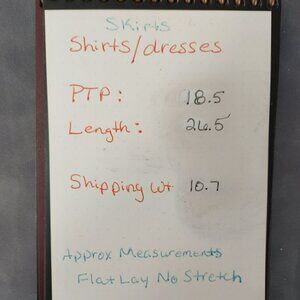 Skirts
Shirts/dresses
PTP: 18.5
Length: 26.5
Shipping wt 10.7
Approx Measurements
Flat Lay No Stretch